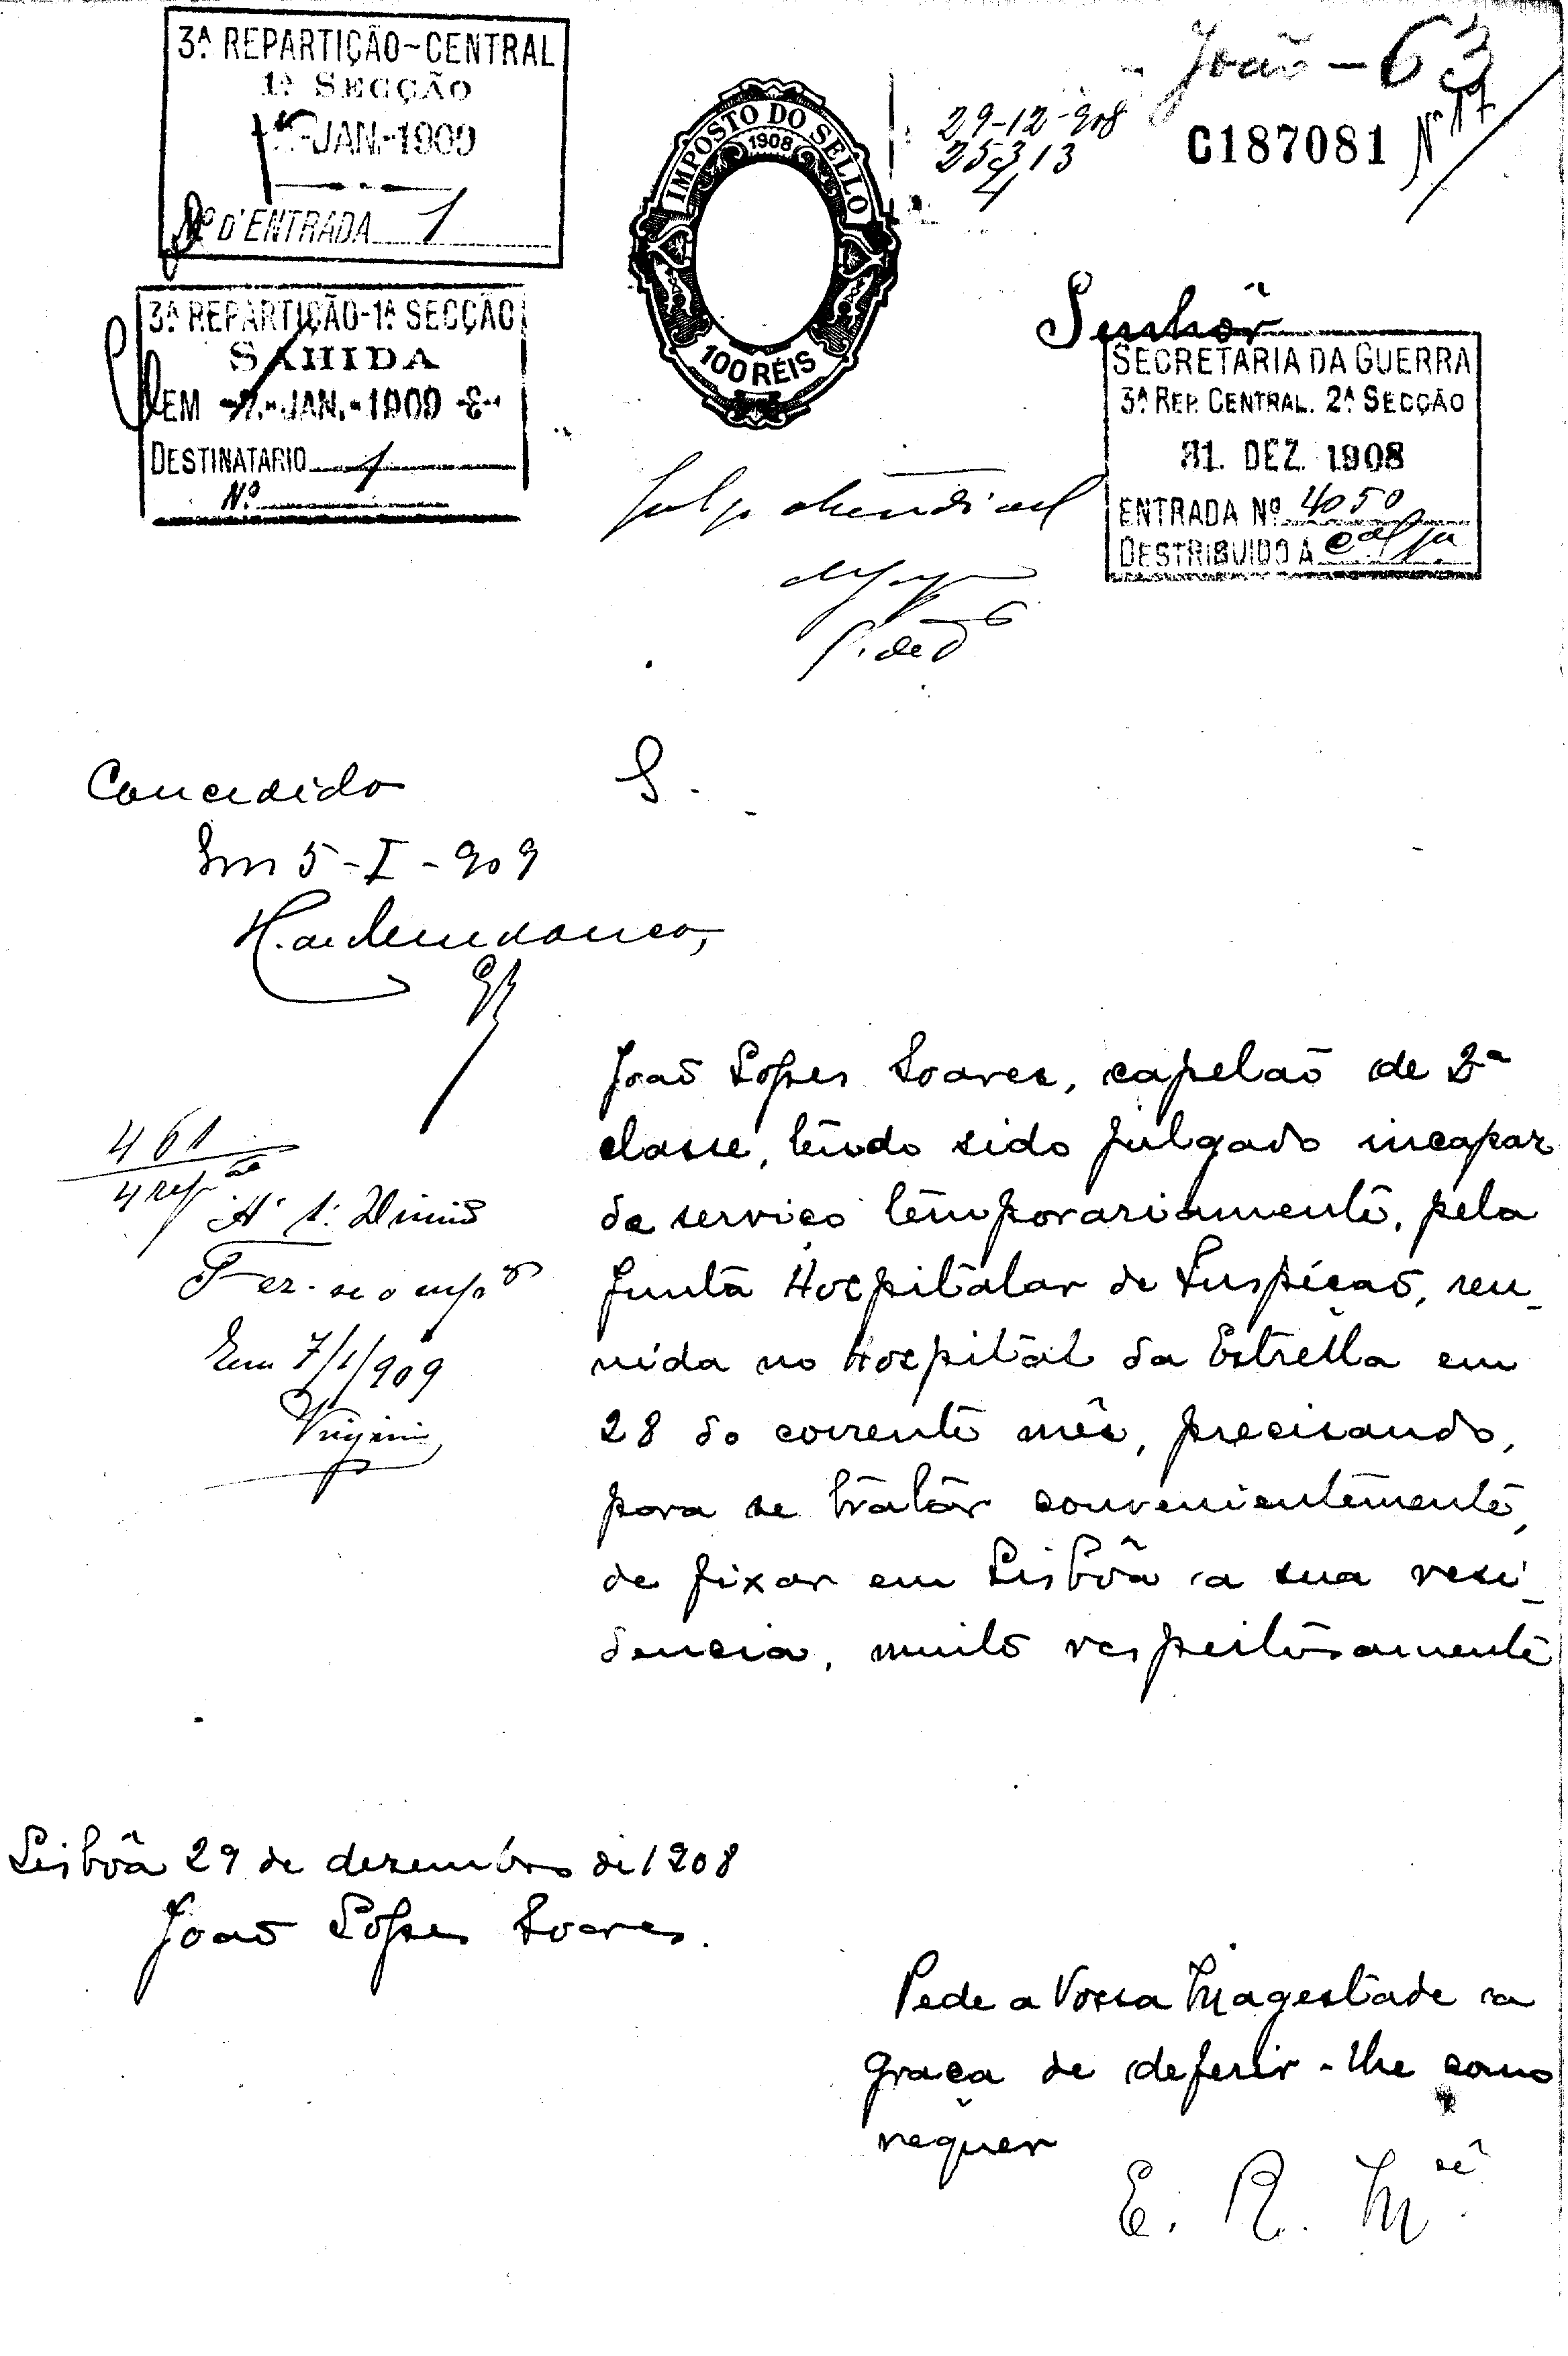 3ª REPARTIÇÃO-CENTRAL
1ª SECÇÃO
JAN.-1909
Nº D'ENTRADA 1
3ª REPARTIÇÃO-1ª SECÇÃO
SAHIDA
EM JAN.-1909
DESTINATARIO 1
Nº
IMPOSTO DO SELLO
1908
100 RÉIS
João - 63
29-12-908
25313
4
C187081 Nº 17
Senhôr
SECRETARIA DA GUERRA
3ª REP. CENTRAL. 2ª SECÇÃO
31. DEZ. 1908
ENTRADA Nº 4050
DESTRIBUIDO A
Julgo
S.
Concedido
Em 5-I-909
461
4 rep
Em 7/1/909
João Lopes Soares, capelão de 2ª
classe, tendo sido julgado incapaz
de serviço temporariamente, pela
Junta Hospitalar de Inspéção, reu-
nida no Hospital da Estrella em
28 do corrente mês, precisando,
para se tratar convenientemente,
de fixar em Lisbôa a sua resi-
dencia, muito respeitosamente
Lisbôa 29 de dezembro de 1908
João Lopes Soares.
Pede a Vossa Magestade a
graça de deferir-lhe como
requer
E. R. Mcê